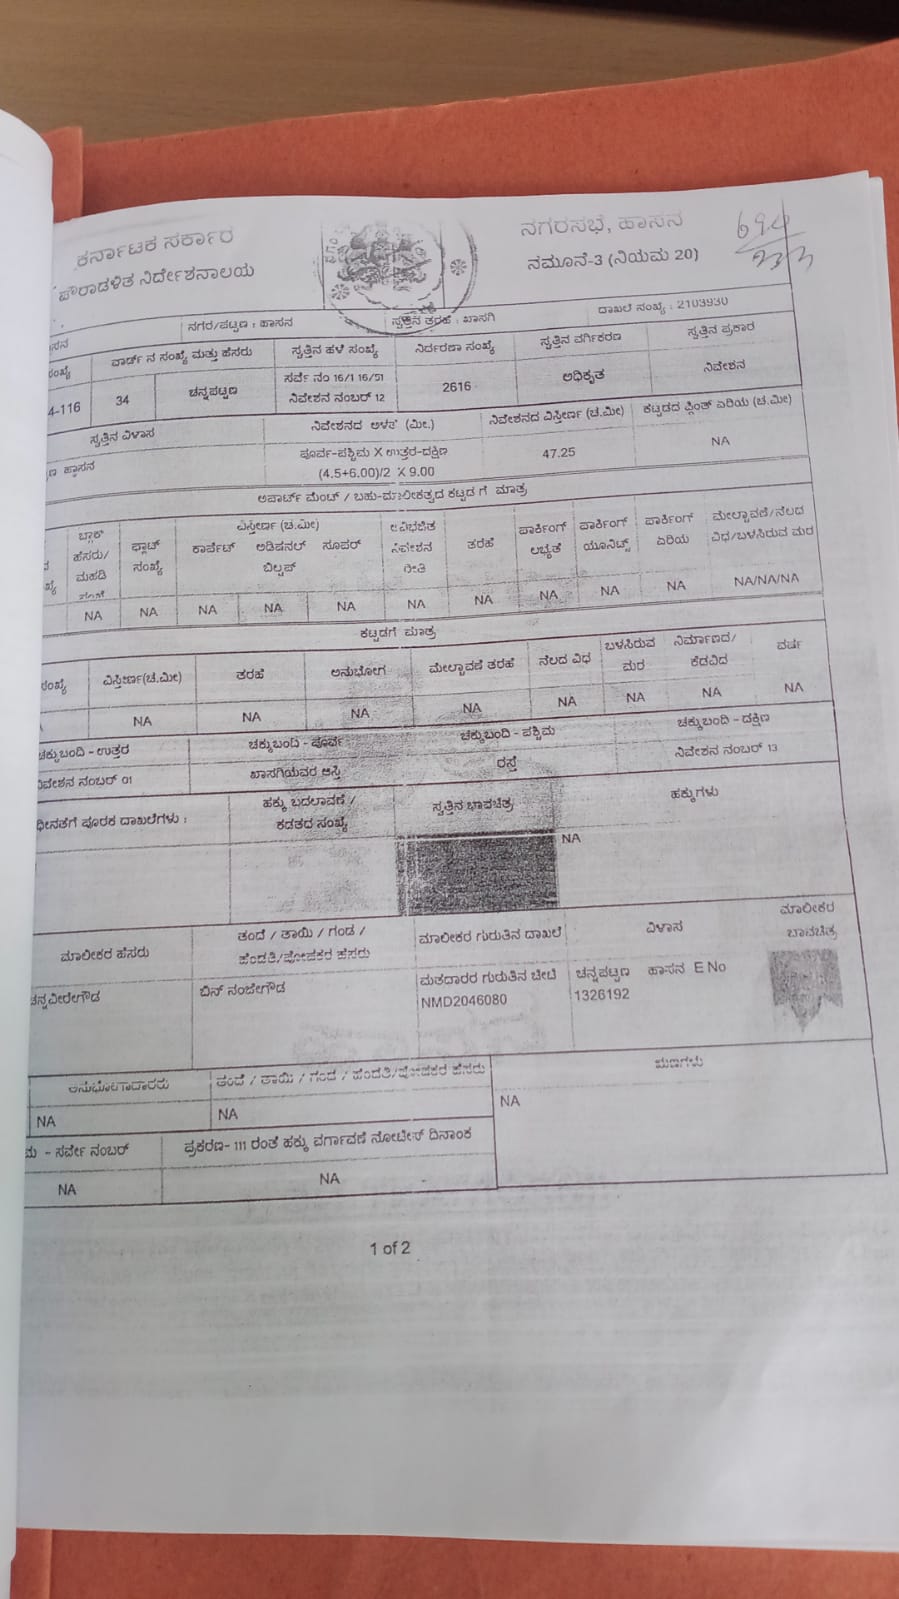 ಕರ್ನಾಟಕ ಸರ್ಕಾರ
ಪೌರಾಡಳಿತ ನಿರ್ದೇಶನಾಲಯ
ನಗರಸಭೆ, ಹಾಸನ
ನಮೂನೆ-3 (ನಿಯಮ 20)
ನಗರ/ಪಟ್ಟಣ : ಹಾಸನ ಸ್ವತ್ತಿನ ತರಹೆ : ಖಾಸಗಿ ದಾಖಲೆ ಸಂಖ್ಯೆ : 2103930
ವಾರ್ಡ್ ನ ಸಂಖ್ಯೆ ಮತ್ತು ಹೆಸರು ಸ್ವತ್ತಿನ ಹಳೆ ಸಂಖ್ಯೆ ನಿರ್ದರಣಾ ಸಂಖ್ಯೆ ಸ್ವತ್ತಿನ ವರ್ಗೀಕರಣ ಸ್ವತ್ತಿನ ಪ್ರಕಾರ
4-116 34 ಚನ್ನಪಟ್ಟಣ ಸರ್ವೆ ನಂ 16/1 16/51 2616 ಅಧಿಕೃತ ನಿವೇಶನ
ನಿವೇಶನ ನಂಬರ್ 12
ಸ್ವತ್ತಿನ ವಿಳಾಸ ನಿವೇಶನದ ಅಳತೆ (ಮೀ.) ನಿವೇಶನದ ವಿಸ್ತೀರ್ಣ (ಚ.ಮೀ) ಕಟ್ಟಡದ ಪ್ಲಿಂತ್ ಏರಿಯ (ಚ.ಮೀ)
ಹಾಸನ ಪೂರ್ವ-ಪಶ್ಚಿಮ X ಉತ್ತರ-ದಕ್ಷಿಣ 47.25 NA
(4.5+6.00)/2 X 9.00
ಅಪಾರ್ಟ್ ಮೆಂಟ್ / ಬಹು-ಮಾಲೀಕತ್ವದ ಕಟ್ಟಡ ಗೆ ಮಾತ್ರ
ಬ್ಲಾಕ್ ಹೆಸರು/ ಮಹಡಿ ಫ್ಲಾಟ್ ಸಂಖ್ಯೆ ವಿಸ್ತೀರ್ಣ (ಚ.ಮೀ) ಕಾರ್ಪೆಟ್ ಅಡಿಷನಲ್ ಬಿಲ್ಟಪ್ ಸೂಪರ್ ನಿವೇಶನ ರೀತಿ ತರಹೆ ಪಾರ್ಕಿಂಗ್ ಲಭ್ಯತೆ ಪಾರ್ಕಿಂಗ್ ಯೂನಿಟ್ಸ್ ಪಾರ್ಕಿಂಗ್ ಏರಿಯ ಮೇಲ್ಚಾವಣಿ/ನೆಲದ ವಿಧ/ಬಳಸಿರುವ ಮರ
NA NA NA NA NA NA NA NA NA NA NA/NA/NA
ಕಟ್ಟಡಗೆ ಮಾತ್ರ
ವಿಸ್ತೀರ್ಣ(ಚ.ಮೀ) ತರಹೆ ಅನುಭೋಗ ಮೇಲ್ಚಾವಣಿ ತರಹೆ ನೆಲದ ವಿಧ ಬಳಸಿರುವ ಮರ ನಿರ್ಮಾಣದ/ ಕೆಡವಿದ ವರ್ಷ
NA NA NA NA NA NA NA NA
ಚಕ್ಕುಬಂದಿ - ಉತ್ತರ ಚಕ್ಕುಬಂದಿ - ಪೂರ್ವ ಚಕ್ಕುಬಂದಿ - ಪಶ್ಚಿಮ ಚಕ್ಕುಬಂದಿ - ದಕ್ಷಿಣ
ನಿವೇಶನ ನಂಬರ್ 01 ಖಾಸಗಿಯವರ ಆಸ್ತಿ ರಸ್ತೆ ನಿವೇಶನ ನಂಬರ್ 13
ಪೂರಕ ದಾಖಲೆಗಳು : ಹಕ್ಕು ಬದಲಾವಣೆ / ಕಡತದ ಸಂಖ್ಯೆ ಸ್ವತ್ತಿನ ಭಾವಚಿತ್ರ ಹಕ್ಕುಗಳು
NA
ಮಾಲೀಕರ ಹೆಸರು ತಂದೆ / ತಾಯಿ / ಗಂಡ / ಹೆಂಡತಿ/ಪೋಷಕರ ಹೆಸರು ಮಾಲೀಕರ ಗುರುತಿನ ದಾಖಲೆ ವಿಳಾಸ ಮಾಲೀಕರ ಭಾವಚಿತ್ರ
ಚನ್ನವೀರೇಗೌಡ ಬಿನ್ ನಂಜೇಗೌಡ ಮತದಾರರ ಗುರುತಿನ ಚೀಟಿ ಚನ್ನಪಟ್ಟಣ ಹಾಸನ E No
NMD2046080 1326192
ಅನುಭೋಗದಾರರು ತಂದೆ / ತಾಯಿ / ಗಂಡ / ಹೆಂಡತಿ/ಪೋಷಕರ ಹೆಸರು ಋಣಗಳು
NA NA NA
- ಸರ್ವೇ ನಂಬರ್ ಪ್ರಕರಣ- 111 ರಂತೆ ಹಕ್ಕು ವರ್ಗಾವಣೆ ನೋಟೀಸ್ ದಿನಾಂಕ
NA NA
1 of 2